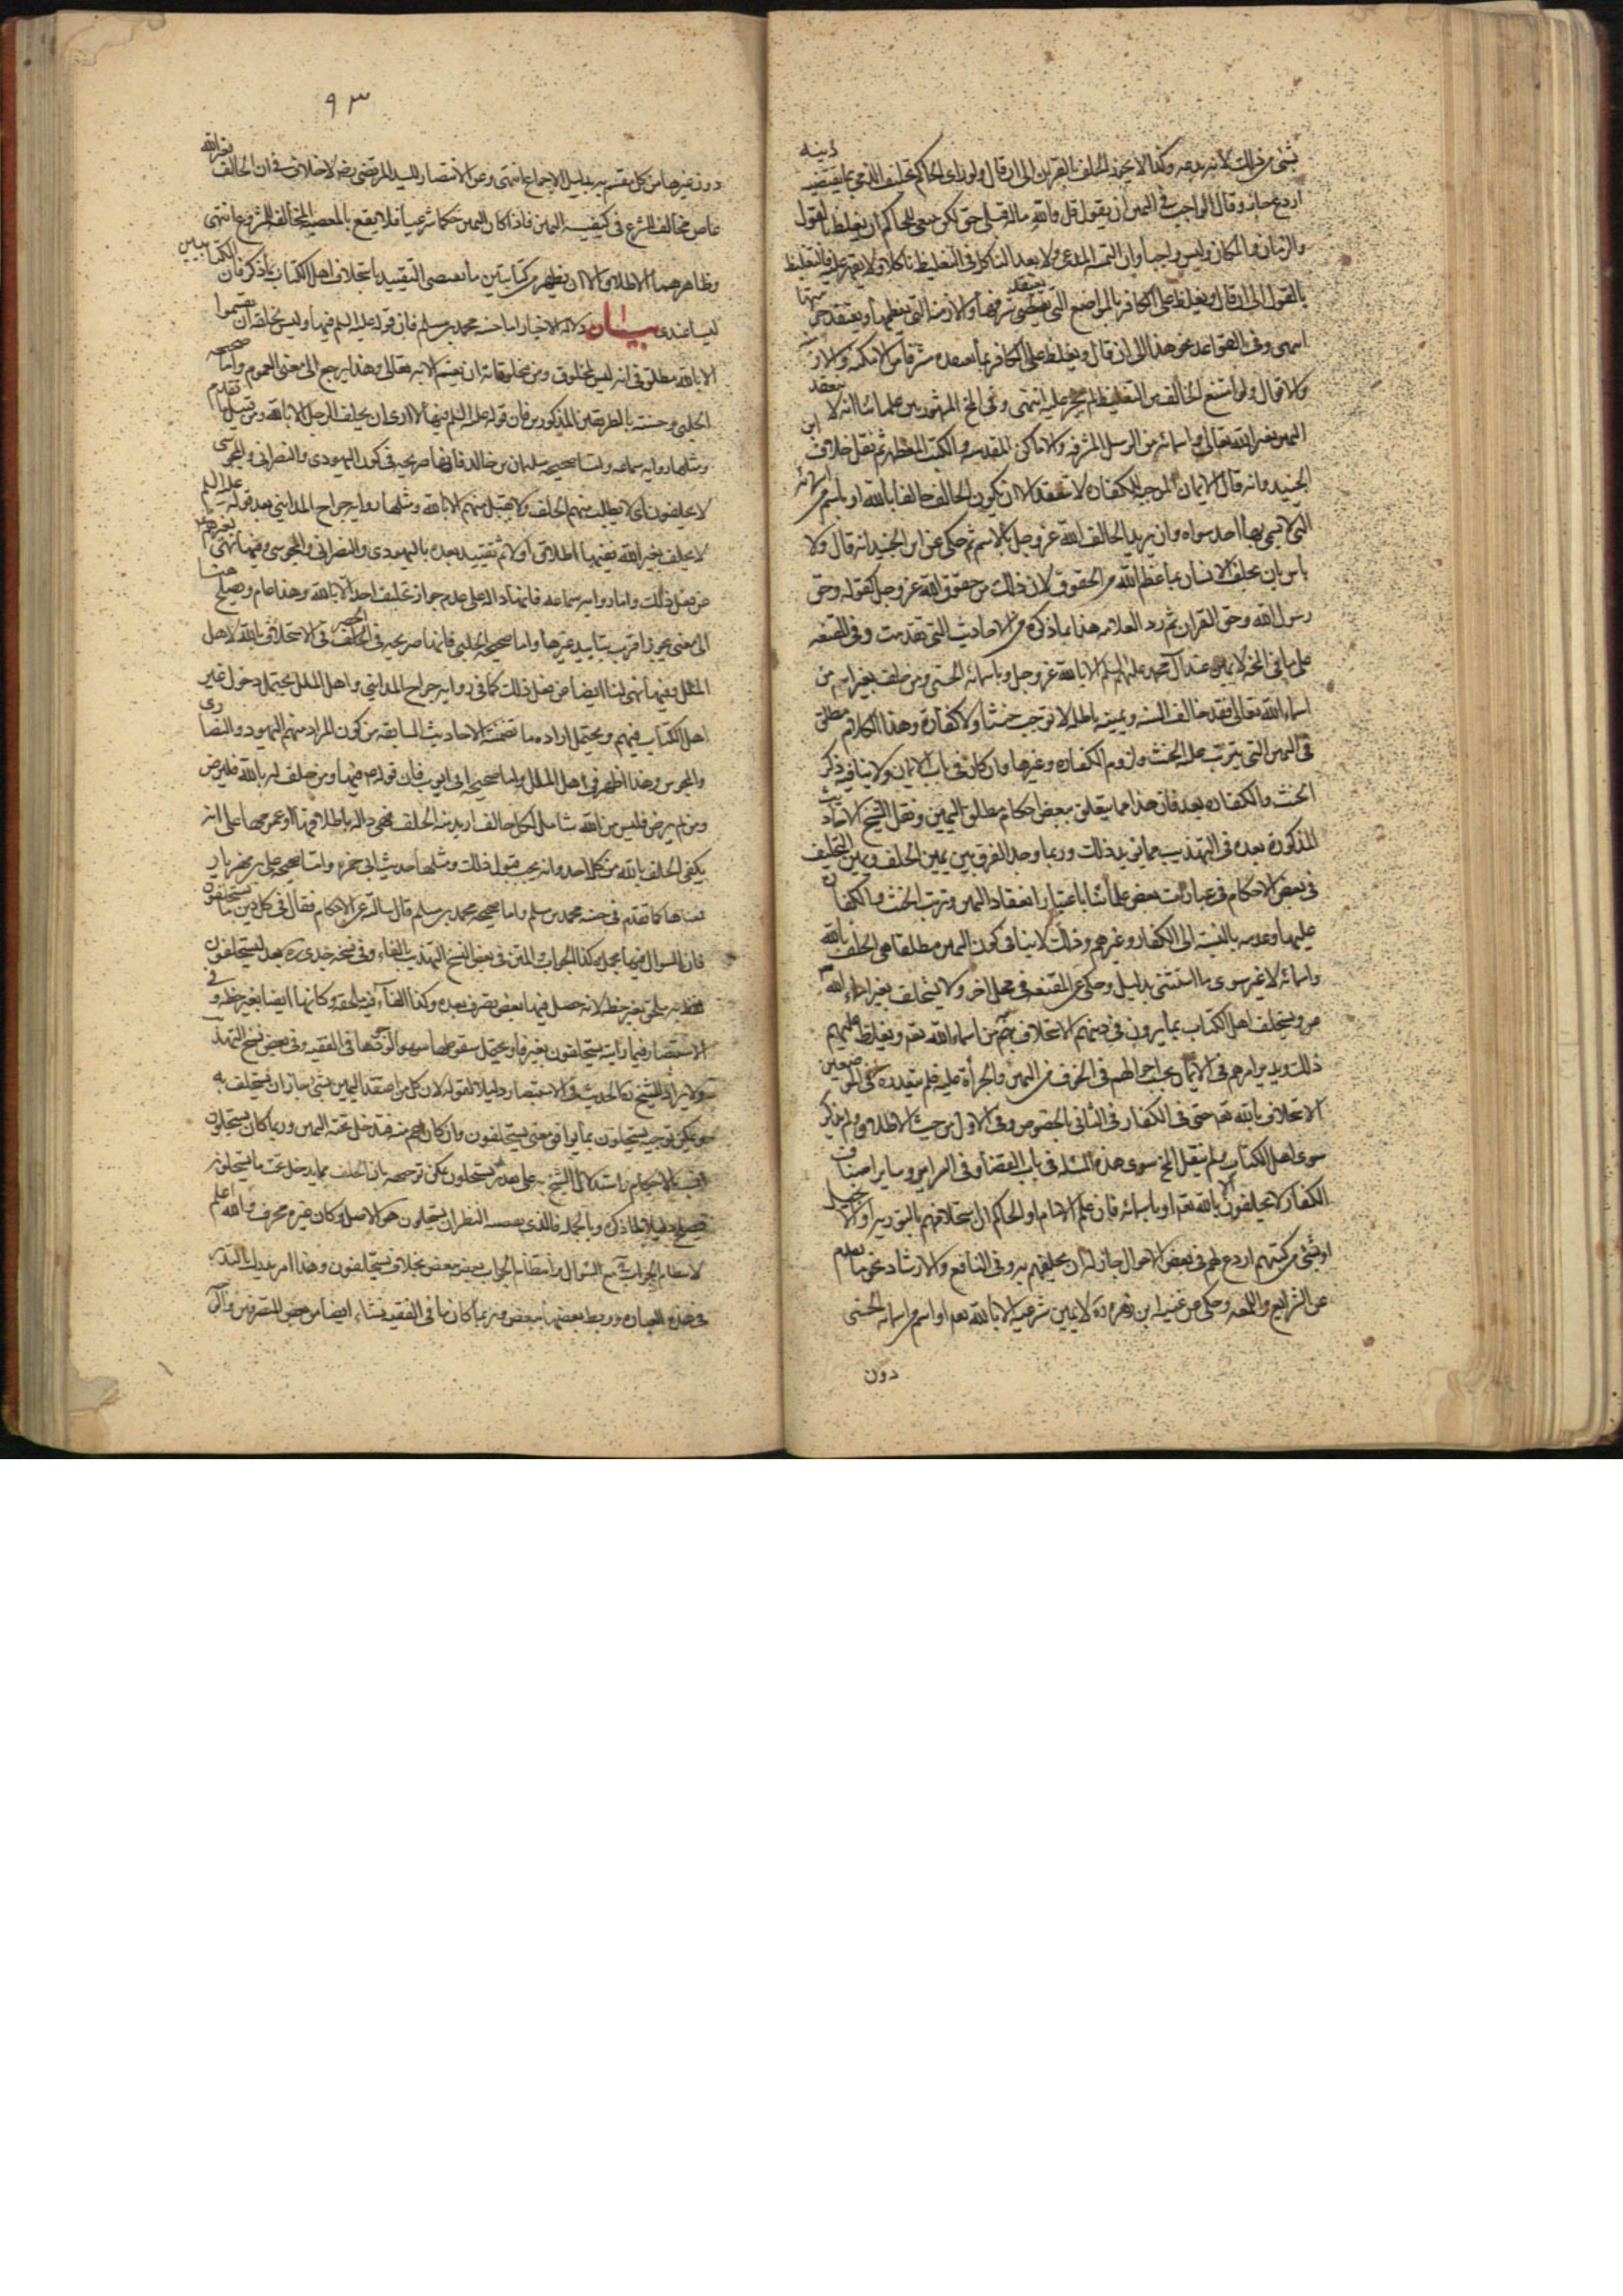 بشئ من ذلك لانه بدعه وكذا لا يجوز الحلف بالقران الى ان قال ولو راى الحاكم تحليف الذمي بما يقتضيه دينه
اردع جاز وقال الواجب في اليمين ان يقول قل والله ماله قبلي حق لكن ينبغي للحاكم ان يغلظ بالقول
والزمان والمكان وليس واجبا وان التمسه المدعي ولا يعد الناكل في التغليظ ناكلا ولا يقهر عليه فالتغليظ
بالقول الى ان قال ويغلظ على الكافر بالمواضع التي يعتقد شرفها والازمنه التي يعظمها ويعتقد حرمتها
انتهى وفي القواعد نحو هذا الى ان قال ويغلظ على الكافر بما يعتقده شرفا من الامكنه والازمنه
والاقوال ولو امتنع الحالف من التغليظ لم يجبر عليه انتهى وفي المخ المشهور بين علمائنا انه لا ينعقد
اليمين بغير الله تعالى واسمائه من الرسل المشرفه والاماكن المقدسه والكتب المعظمه ثم نقل خلاف ابن
الجنيد وانه قال الايمان الموجبه للكفاره لا تنعقد الا ان يكون الحالف حالفا بالله او باسم من اسمائه
التي لا يسمى بها احد سواه وان يريد الحالف الله عز وجل بالاسم ثم حكى عن ابن الجنيد انه قال ولا
باس بان يحلف الانسان بما عظم الله من الحقوق لان ذلك من حقوق الله عز وجل كقوله وحق
رسول الله وحق القران ثم رد العلامه هذا بما ذكره من الاحاديث التي تقدمت وفي المقنعه
على ما في المخ لا يمين عند آل محمد عليهم السلم الا بالله عز وجل وباسمائه الحسنى ومن حلف بغير اسم من
اسماء الله تعالى فقد خالف السنه ويمينه باطله لا توجب حنثا ولا كفارة وهذا الكلام مطلق
في اليمين التي يترتب عليه الحنث ولزوم الكفاره وغيرها وان كان في باب الايمان ولا ينافيه ذكر
الحنث والكفاره بعد فان هذا مما يتعلق ببعض احكام مطلق اليمين ونقل الشيخ الاحاديث
المذكورة بعده في التهذيب مما في يد ذلك وربما وجد الفرق بين يمين الحلف وبين التحليف
في بعض الاحكام في عبارات بعض علمائنا باعتبار انعقاد اليمين وترتب الحنث والكفاره
عليها وعدمه بالنسبه الى الكفار وغيرهم وذلك لا ينافي كون اليمين مطلقا هي الحلف بالله
واسمائه لا غير سوى ما استثنى بدليل وحكى عن المقنعه في محل اخر ولا يستحلف بغير اسماء الله
عز ويستحلف اهل الكتاب بما يرون في دينهم الاستحلاف به من اسماء الله تعه ويغلظ عليهم
ذلك ويدبر امرهم في الايمان بحسب احوالهم في الخوف من اليمين والجرأة عليه فلم يتعد في الموضعين
الاستحلاف بالله تعه حتى في الكفار في الثاني بالخصوص وفي الاول من حيث الاطلاق ولم يذكر
سوى اهل الكتاب ولم ينقل المخ سوى هذه المسئله في باب القضاء وفي المراسم وساير اصناف
الكفار لا يحلفون الا بالله تعه او باسمائه فان علم الامام او الحاكم ان استحلافهم بالتوريه او الانجيل
او بشئ من كتبهم اردع لهم في بعض الاحوال جاز له ان يحلفهم به وفي النافع والارشاد نحو ما تقدم
عن الشرايع واللمعه وحكى عن غنيه ابن زهره ره لا يمين شرعيه الا بالله تعه او اسم من اسمائه الحسنى
دون
٩٣
دون غيرها من كل مقسم به بدليل الاجماع انتهى وعن الانتصار للسيد المرتضى رضه لا خلاف في ان الحالف بغير الله
عاص مخالف للشرع في كيفيه اليمين فاذا كان اليمين حكما شرعيا فلا يقع بالمعصيه المخالفه للمشروع انتهى
وظاهرهما الاطلاق الا ان يظهر من كتابيتين ما يقتضي التقييد باستحلاف اهل الكتاب بما ذكر فان الكتابين
ليسا عندي بيان دلاله الاخبار اما حسنه محمد بن مسلم فان قوله عليه السلم فيها وليس لخلقه ان يقسموا
الا بالله مطلق في انه ليس لمخلوق من مخلوقاته ان يقسم الا به تعالى وهذا يرجع الى معنى العموم واما صحيحه
الحلبي وحسنته بالطريقين المذكورين فان قوله عليه السلم فيها لا ارى ان يحلف الرجل الا بالله من قبيل ما تقدم
ومثلها روايه سماعه واما صحيحه سليمان بن خالد فانها صريحه في كون اليهودي والنصراني والمجوسي
لا يحلفون اي لا يطلب منهم الحلف ولا يقبل منهم الا بالله ومثلها روايه جراح المدايني بعد قوله عليه السلم
لا يحلف بغير الله ففيها اطلاق اولا ثم تقييد بعده باليهودي والنصراني والمجوسي وفيها نهى
عن فعل ذلك واما روايه سماعه فانها داله على عدم جواز تحليف احد الا بالله وهذا عام ويصلح
الى معنى يجوز اقرب بتاييد غيرها واما صحيحه الحلبي فانها صريحه في الحصر في الاستحلاف بالله لاهل
الملل وفيها نهى لنا ايضا عن فعل ذلك كما في روايه جراح المدايني واهل الملل يحتمل دخول غير
اهل الكتاب فيهم ويحتمل اراده ما تضمنته الاحاديث السابقه من كون المراد منهم اليهود والنصارى
والمجوس وهذا اظهر في اهل الملل واما صحيحه ابي ايوب فان قوله ع فيها ومن حلف له بالله فليرض
ومن لم يرض فليس من الله شامل لكل حالف اريد منه الحلف فهي داله باطلاقها او عمومها على انه
يكفي الحلف بالله من كل احد وانه يجب قبول ذلك ومثلها حديث ابي حمزه واما صحيحه علي بن مهزيار
فمعناها كما تقدم في حسنه محمد بن مسلم واما صحيحه محمد بن مسلم قال سالته عن الاحكام فقال في كل دين ما يستحلفون
فان السوال فيها مجمل وكذا الجواب المتن في بعض النسخ التهذيب بالفاء وفي نسخه جدي ره بعد يستحلفون
الاستبصار فيما رايته يستحلفون بغير فاء ويحتمل سقوطها سهوا لوجودها في الفقيه وفي بعض نسخ التهذيب
ولايراد الشيخ ره الحديث في الاستبصار دليلا لقوله لان كل من اعتقد اليمين بشئ جاز ان يستحلف به
ويمكن توجيه يستحلون بما يوافق معنى يستحلفون وان كان اعم منه فتدخل تحته اليمين وربما كان يستحلون
انسب بالاحكام واستدلال الشيخ به على تقدير يستحلون يمكن توجيهه بان الحلف مما يدخل تحت ما يستحلون
فيصلح دليلا لما ذكره وبالجمله فالذي يقتضيه النظر ان يستحلون هو الاصل وكان غيره محرف والله اعلم
لانتظام الجواب مع السوال وانتظام الجواب بعضه ببعض بخلاف يستحلفون وهذا امر يدرك بالتدبر
في هذه العباره وربط بعضها ببعض وربما كان ما في الفقيه نشاء ايضا من بعض المتصرفين وان